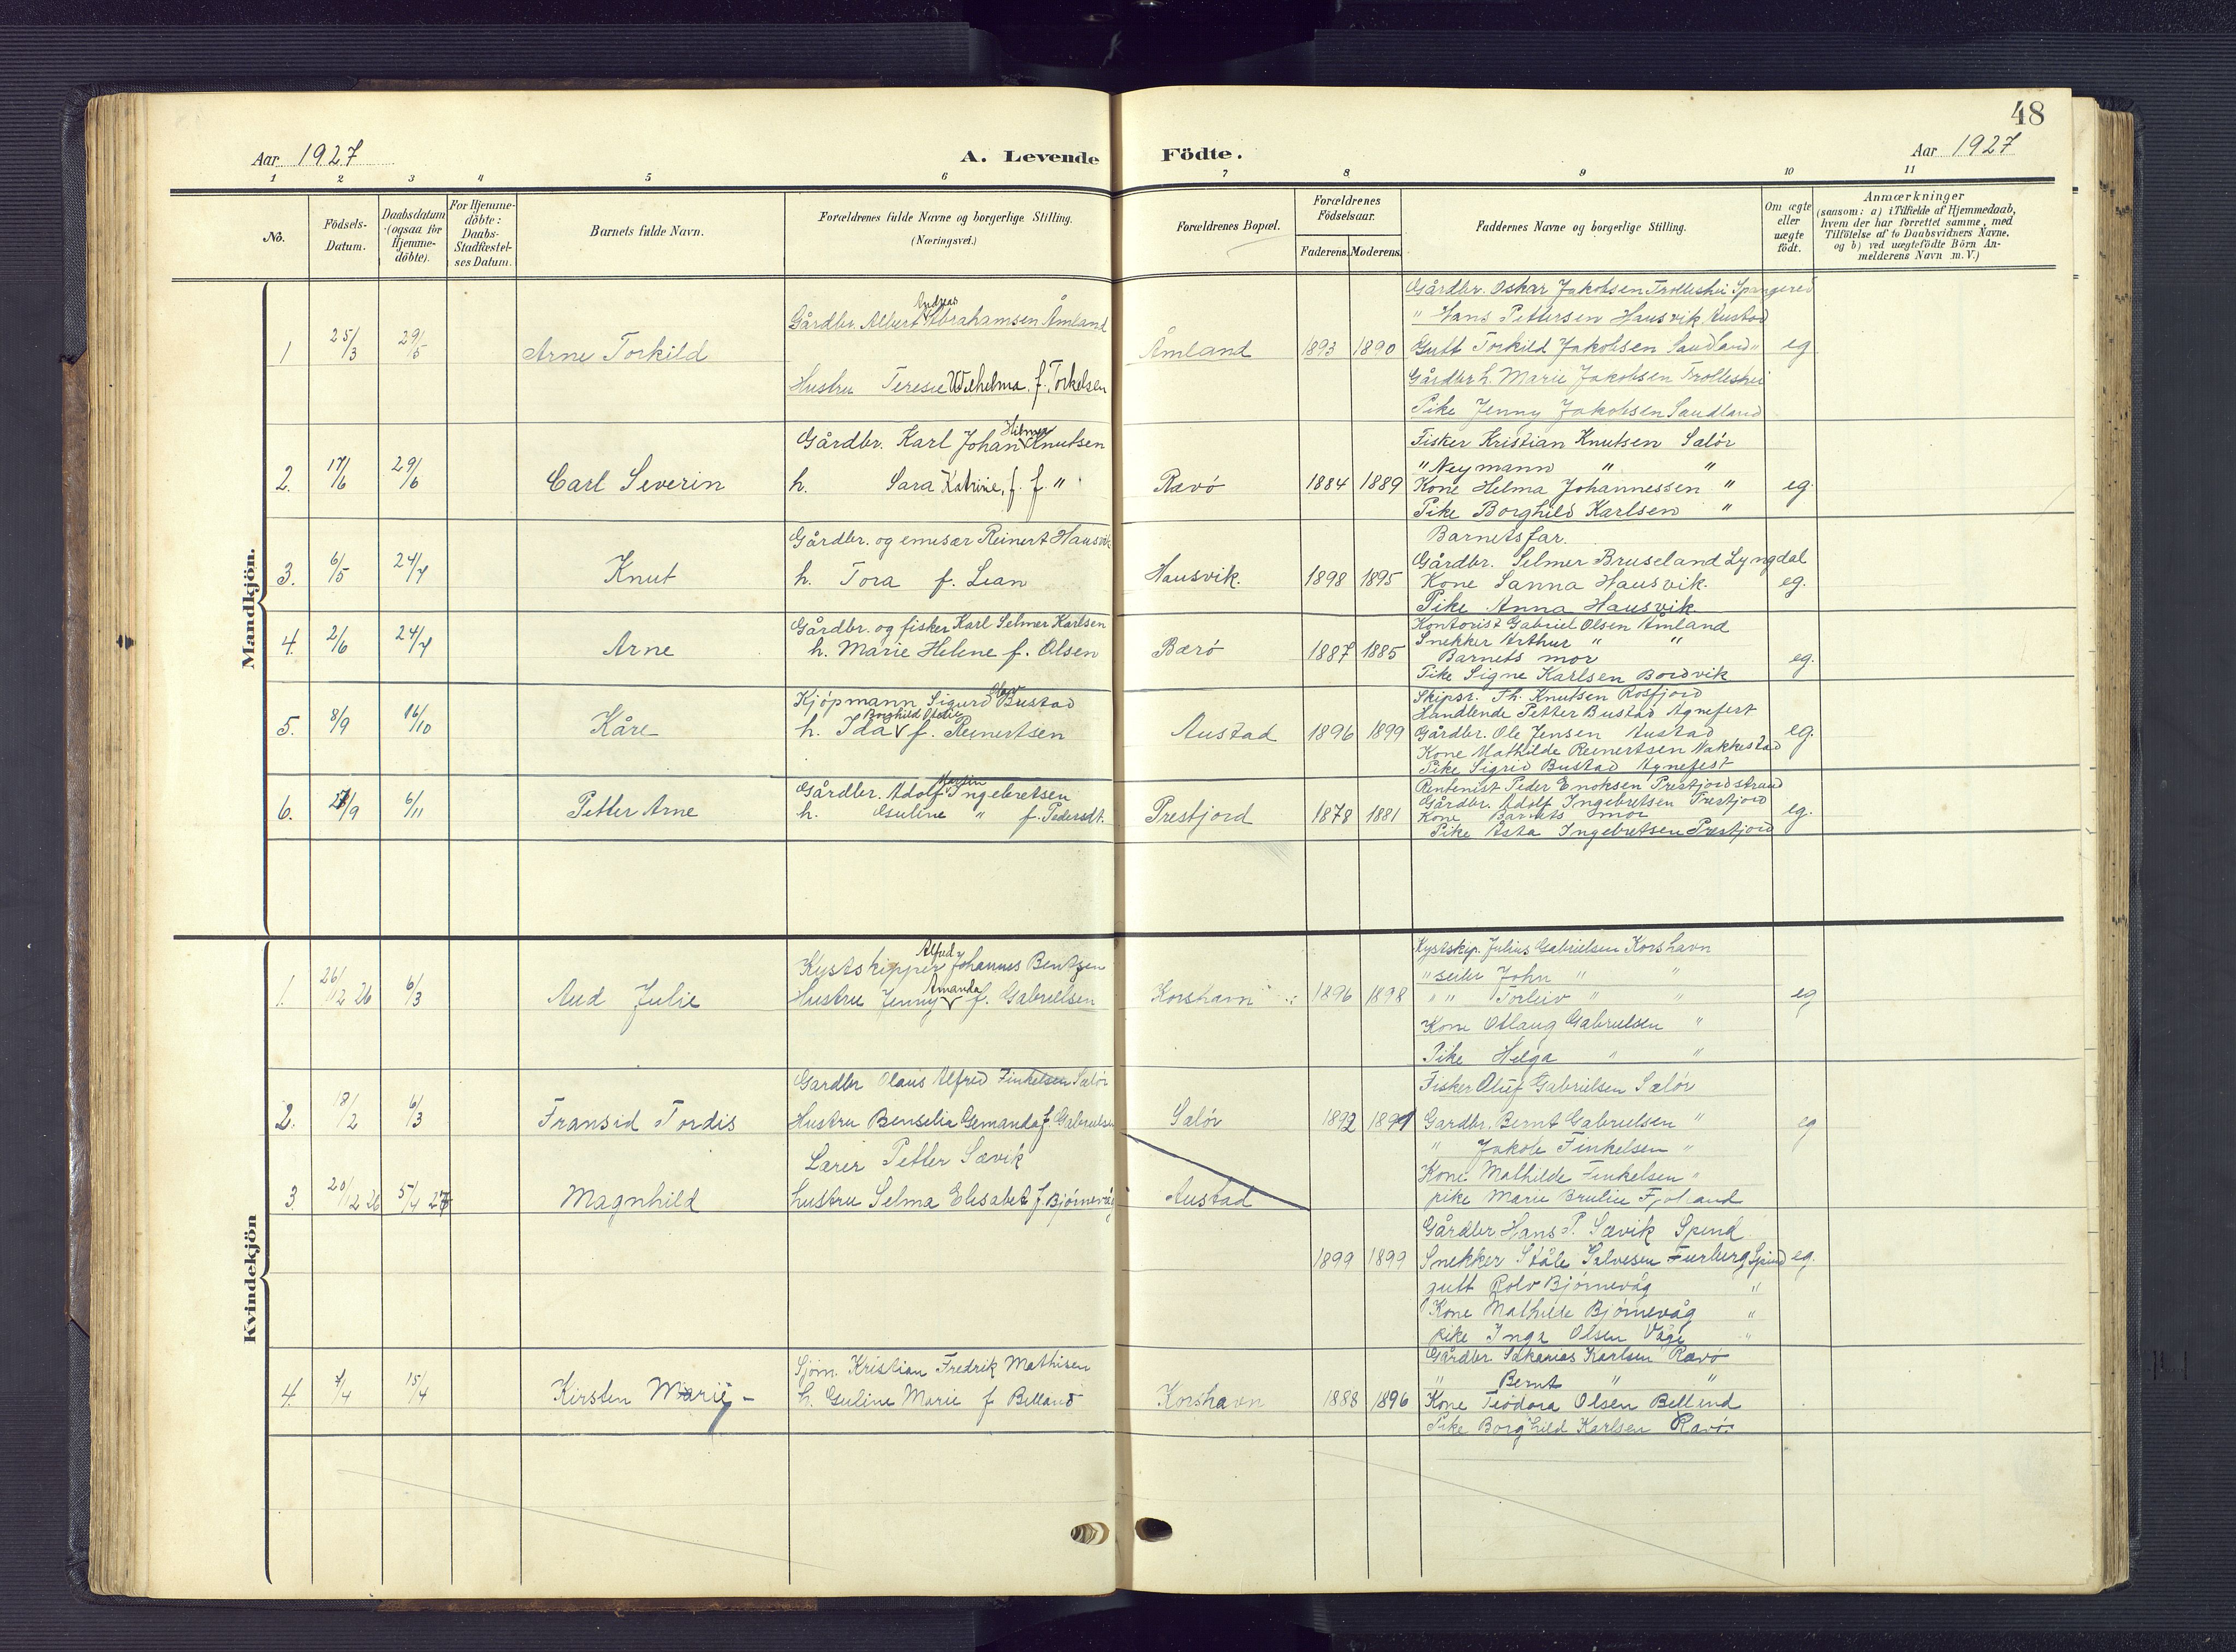 48
Aar 1927
A. Levende Födte.
Aar 1927
1 2 3 4 5 6 7 8 9 10 11
No.
Födsels-Datum.
Daabsdatum (ogsaa for Hjemme-döbte).
For Hjemme-döbte: Daabs-Stadfæstel-ses Datum.
Barnets fulde Navn.
Forældrenes fulde Navne og borgerlige Stilling.
(Næringsvei.)
Forældrenes Bopæl.
Forældrenes Födselsaar.
Faderens. Moderens.
Faddernes Navne og borgerlige Stilling.
Om ægte eller uægte födt.
Anmærkninger
(saasom: a) i Tilfælde af Hjemmedaab, hvem der har forrettet samme, med Tilföielse af to Daabsvidners Navne, og b) ved uægtefödte Börn Anmelderens Navn m.V.)
Mandkjön.
1 25/3 29/5 Arne Torkild
Gårdbr. Albert Andreas Abrahamsen Åmland
Hustru Terese Wilhelma. f. Torkelsen
Åmland 1893 1890
Gårdbr. Oskar Jakobsen Trolleshei Spangereid
" Hans Pettersen Hausvik Austad
Gutt Torkild Jakobsen Sandland " eg
Gårdbr. h. Marie Jakobsen Trolleshei
Pike Jenny Jakobsen Sandland
2. 17/6 29/6 Carl Severin
Gårdbr. Karl Johan Hilmar Knutsen
h. Sara Katrine, f. f. "
Rævö 1884 1889
Fisker Kristian Knutsen Sælör
" Neymann " "
Kone Helma Johannessen " eg.
Pike Borghild Karlsen "
3. 6/5 24/7 Knut
Gårdbr. og emisær Reinert Hausvik
h. Tora f. Lian
Hausvik. 1898 1895
Barnets far.
Gårdbr. Selmer Bruseland Lyngdal
Kone Sanna Hausvik. eg.
Pike Anna Hausvik
4. 2/6 24/7 Arne
Gårdbr. og fisker Karl Selmer Karlsen
h. Marie Helene f. Olsen
Bærö 1887 1885
Kontorist Gabriel Olsen Åmland
Snekker Arthur " "
Barnets mor eg.
Pike Signe Karlsen Bordvik
5. 8/9 16/10 Kåre
Kjöpmann Sigurd Olav Bustad
h. Ida Borghild Otelie f. Reinertsen
Austad 1896 1899
Skipsr. Th. Knutsen Rosfjord
Handlende Petter Bustad Agnefest
Gårdbr. Ole Jensen Austad eg.
Kone Mathilde Reinertsen Nakkestad
Pike Sigrid Bustad Agnefest
6. /9 6/11 Petter Arne
Gårdbr. Adolf Martin Ingebretsen
h. Guline " f. Pedersdt.
Prestjord 1878 1881
Rentenist Peder Enoksen Prestjordstrand
Gårdbr. Adolf Ingebretsen Prestjord
Kone Barnets mor eg.
Pike Asta Ingebretsen Prestjord
Kvindekjön
1. 26/12 26 6/3 Aud Julie
Kystskipper Alfred Johannes Bentsen
Hustru Jenny Amanda f. Gabrielsen
Korshavn 1896 1898
Kystskip. Julius Gabrielsen Korshavn
" John " "
" " Torleiv " " eg
Kone Otlaug Gabrielsen "
Pike Helga " "
2. 18/2 6/3 Fransid Tordis
Gardbr Olaus Alfred Finkelsen Sælör
Hustru Benselia Gemanda f. Gabrielsen
Sælör 1892 1891
Fisker Oluf Gabrielsen Sælör
Gardbr. Bernt Gabrielsen " eg
" Jakob Finkelsen "
Kone Mathilde Finkelsen "
pike Marie
3 20/12 26 5/4 27 Magnhild
Lærer Petter Sævik
hustru Selma Elisabet f. Bjørnevåg
Austad 1899 1899
Gårdbr Hans P. Sævik Spind
Snekker Ståle Salvesen Furberg Spind eg.
gutt Rolv Bjørnevåg "
Kone Mathilde Bjørnevåg "
pike Inga Olsen Våge "
4. 7/4 15/4 Kirsten Marie
Sjöm. Kristian Fredrik Mathisen
h. Guline Marie f Belland
Korshavn 1888 1896
Gårdbr. Sakarias Karlsen Rævö
" Bernt " "
Kone Teodora Olsen Belland
Pike Borghild Karlsen Rævö.